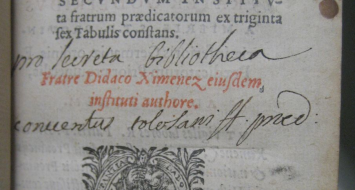 SECVNDVM INSTITV-
ta fratrum prædicatorum ex triginta
sex Tabulis constans.
pro secreta bibliotheca
Fratre Didaco Ximenez eiusdem
instituti authore.
conventus tolosani ff. præd: